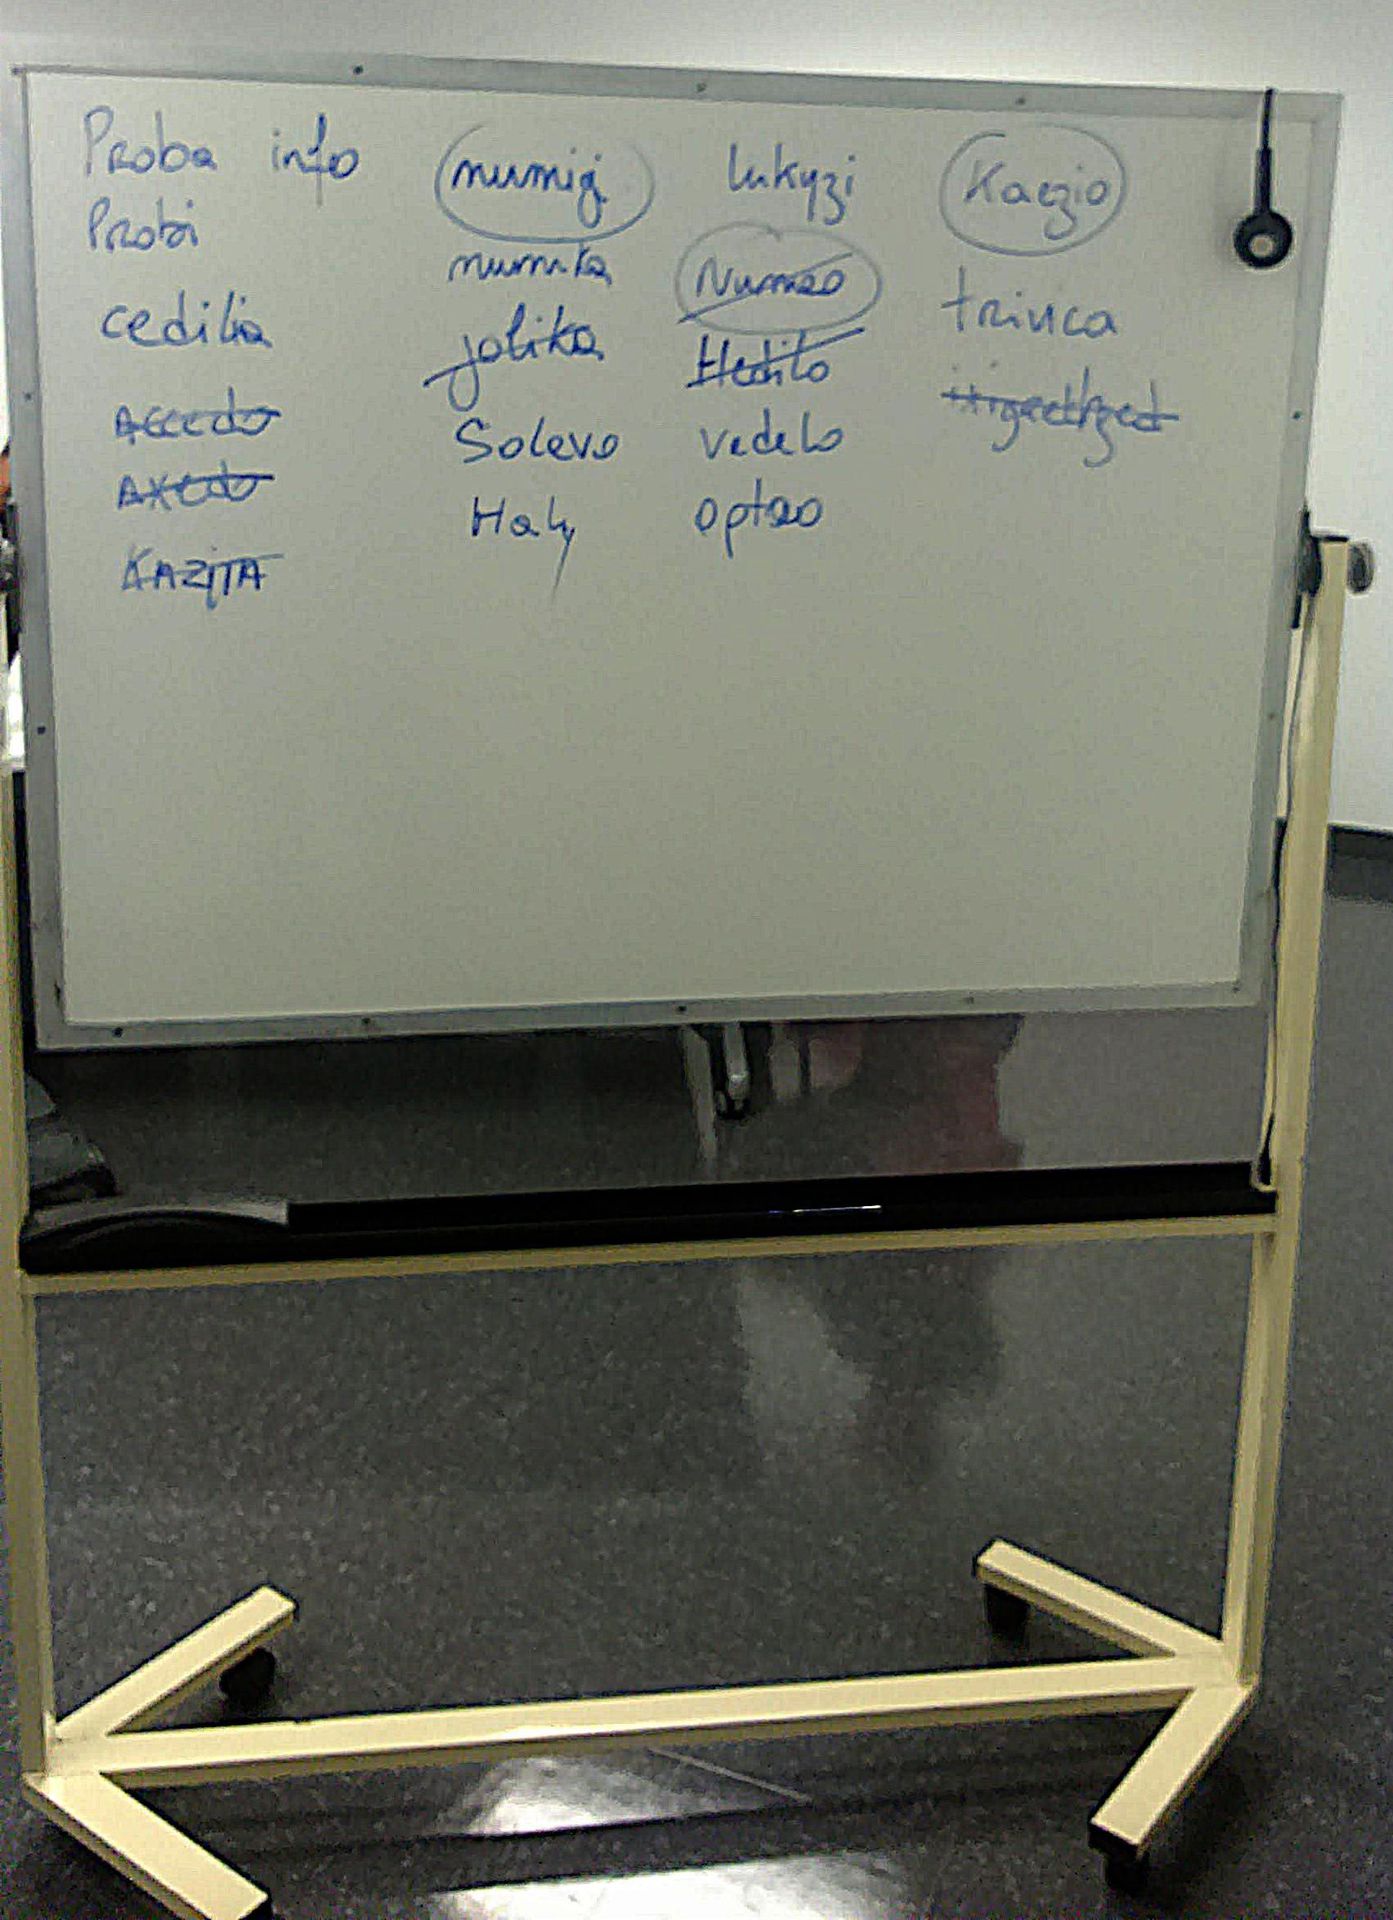 Proba info
Probi
cedilia
Accedo
Axedo
KAZiTA
numigi
numika
jolika
Solevo
Haly
lukyzi
Numeo
Hedilo
vedelo
opteo
Kaezio
trinca